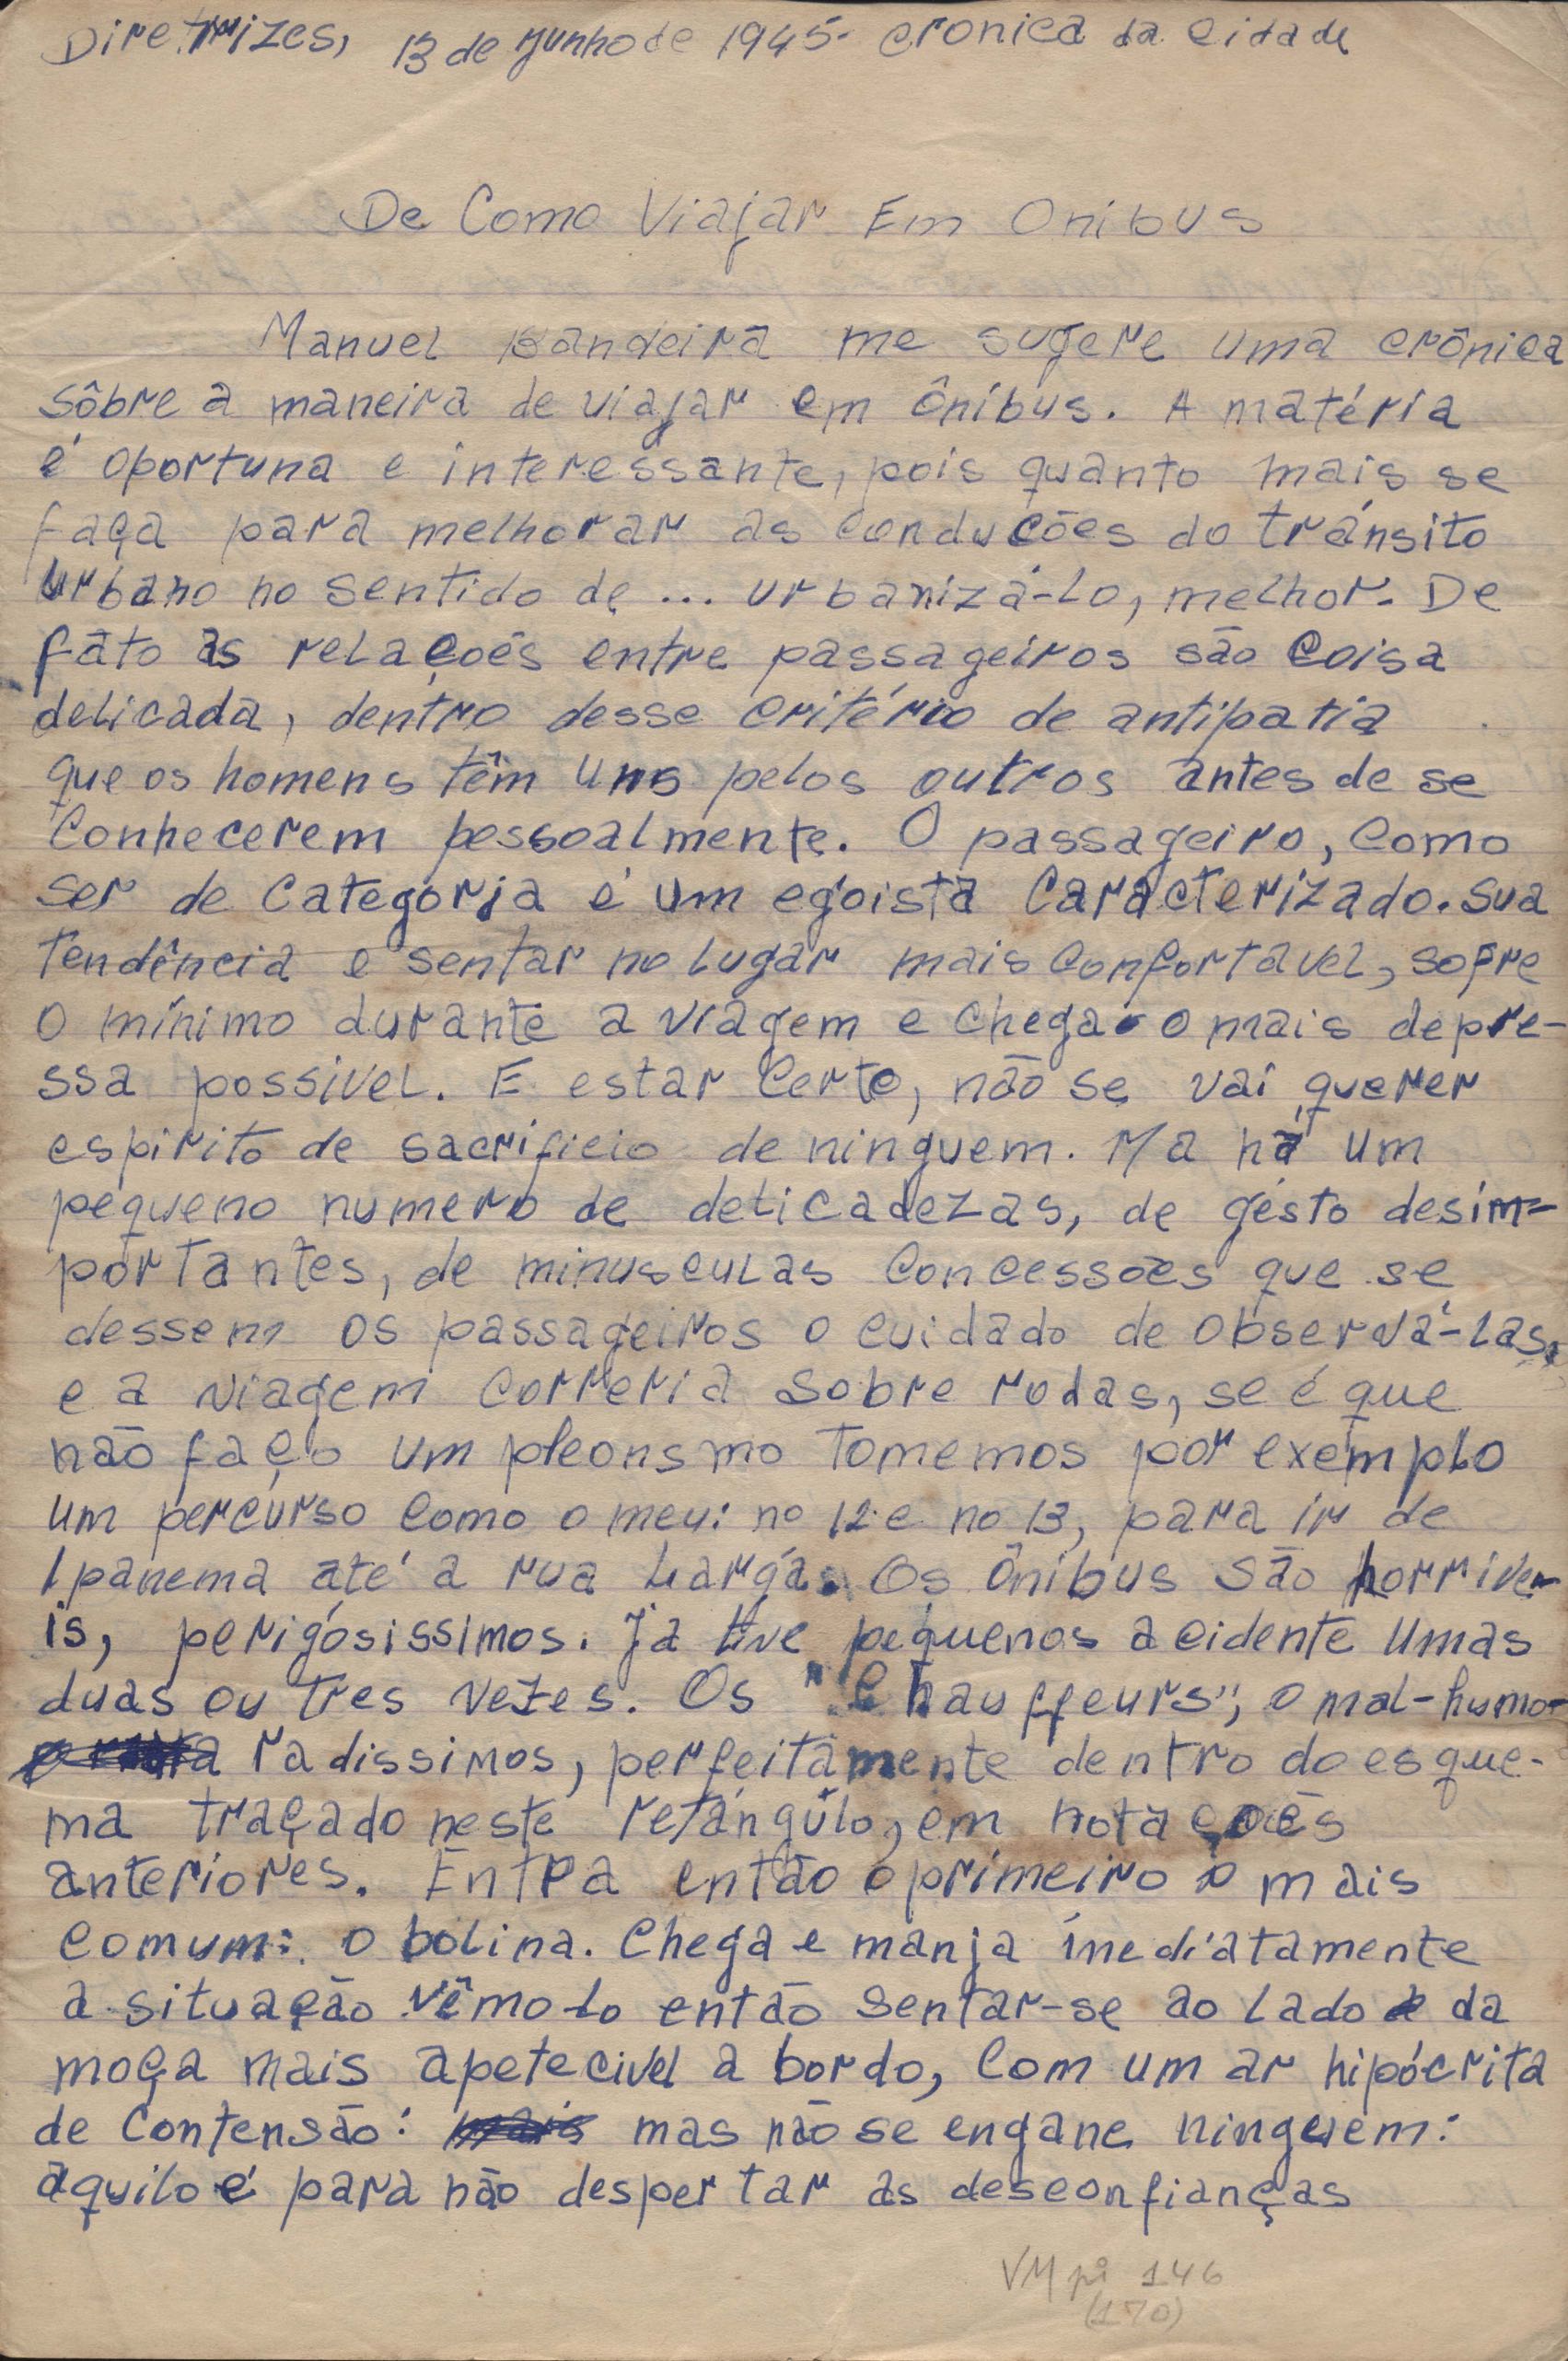 Diretrizes, 13 de junho de 1945 - cronica da cidade
De Como Viajar Em Onibus
Manuel Bandeira me sugere uma crônica
sôbre a maneira de viajar em ônibus. A matéria
é oportuna e interessante, pois quanto mais se
faça para melhorar as conduções do trânsito
urbano no sentido de ... urbanizá-lo, melhor. De
fato as relações entre passageiros são coisa
delicada, dentro desse critério de antipatia
que os homens têm uns pelos outros antes de se
conhecerem pessoalmente. O passageiro, como
ser de categoria é um egoista caracterizado. Sua
tendência e sentar no lugar mais confortavel, sofre
o mínimo durante a viagem e chegar o mais depre-
ssa possivel. E estar certo, não se vai querer
espirito de sacrificio de ninguem. Ma há um
pequeno numero de delicadezas, de gésto desim-
portantes, de minusculas concessões que se
dessem os passageiros o cuidado de observá-las,
e a viagem correria sobre rodas, se é que
não faço um pleonsmo Tomemos por exemplo
um percurso como o meu: no 12 e no 13, para ir de
Ipanema até a rua Larga. Os ônibus são horrive-
is, perigósissimos. Já tive pequenos acidente umas
duas ou tres vezes. Os "Chauffeurs", o mal-humo-
radissimos, perfeitamente dentro do esque-
ma traçado neste retângulo, em notações
anteriores. Entra então o primeiro o mais
comum: o bolina. Chega e manja imediatamente
a situação vêmo-lo então sentar-se ao lado da
moça mais apetecivel a bordo, com um ar hipócrita
de contensão: mais mas não se engane ninguem:
aquilo é para não despertar as desconfianças
VM pi 146
(170)